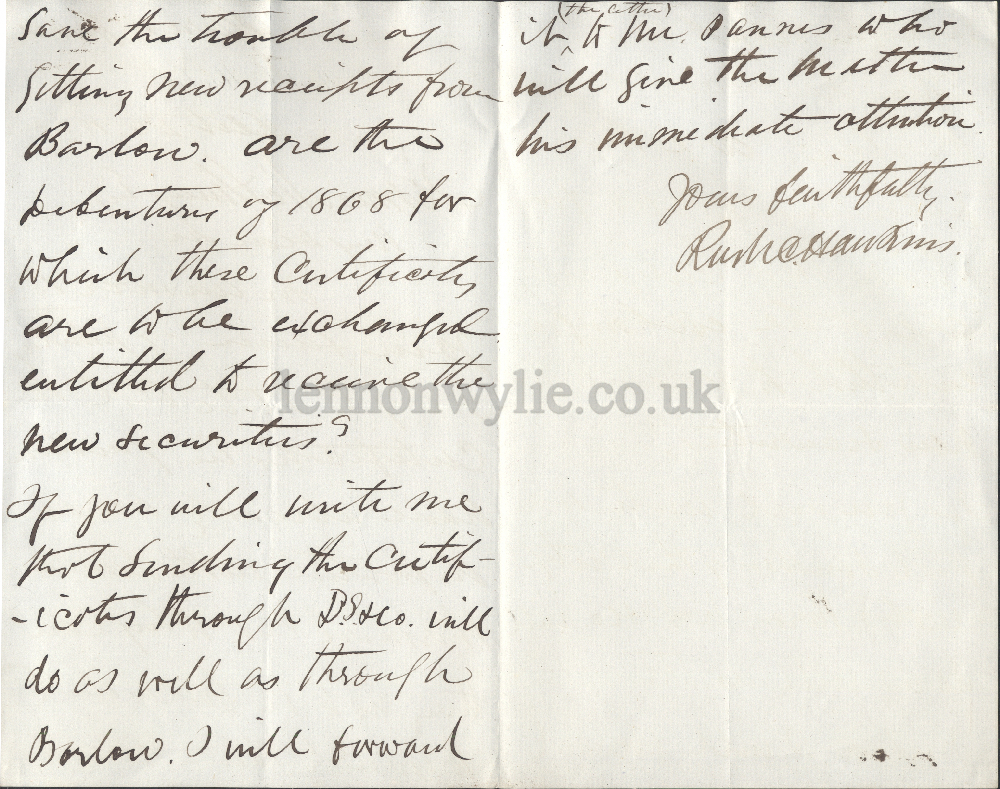 Save the trouble of
getting new receipts from
Barlow. are the
debentures of 1868 for
which these Certificates
are to be exchanged
entitled to receive the
new securities?
If you will write me
that sending the Certif-
-icates through B.S. & Co. will
do as well as through
Barlow. I will forward
(the letter)
it ^ to Mr. Pannes who
will give the matter
his immediate attention.
Yours faithfully.
Rush C. Hawkins.
lennonwylie.co.uk